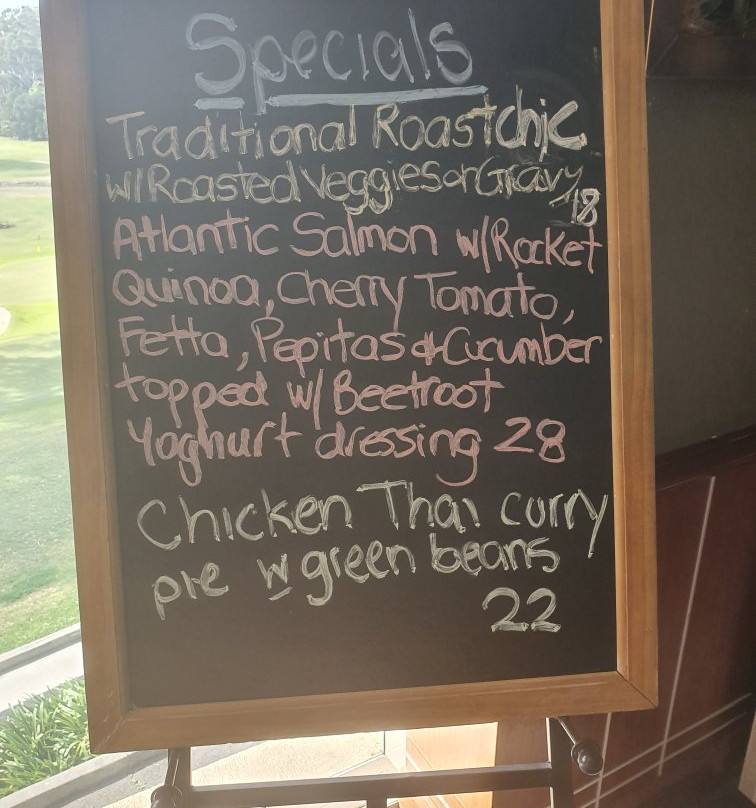 Specials
Traditional Roast chic
w/Roasted Veggies or Gravy
18
Atlantic Salmon w/Rocket
Quinoa, Cherry Tomato,
Fetta, Pepitas & Cucumber
topped w/Beetroot
Yoghurt dressing 28
Chicken Thai curry
pie w green beans
22